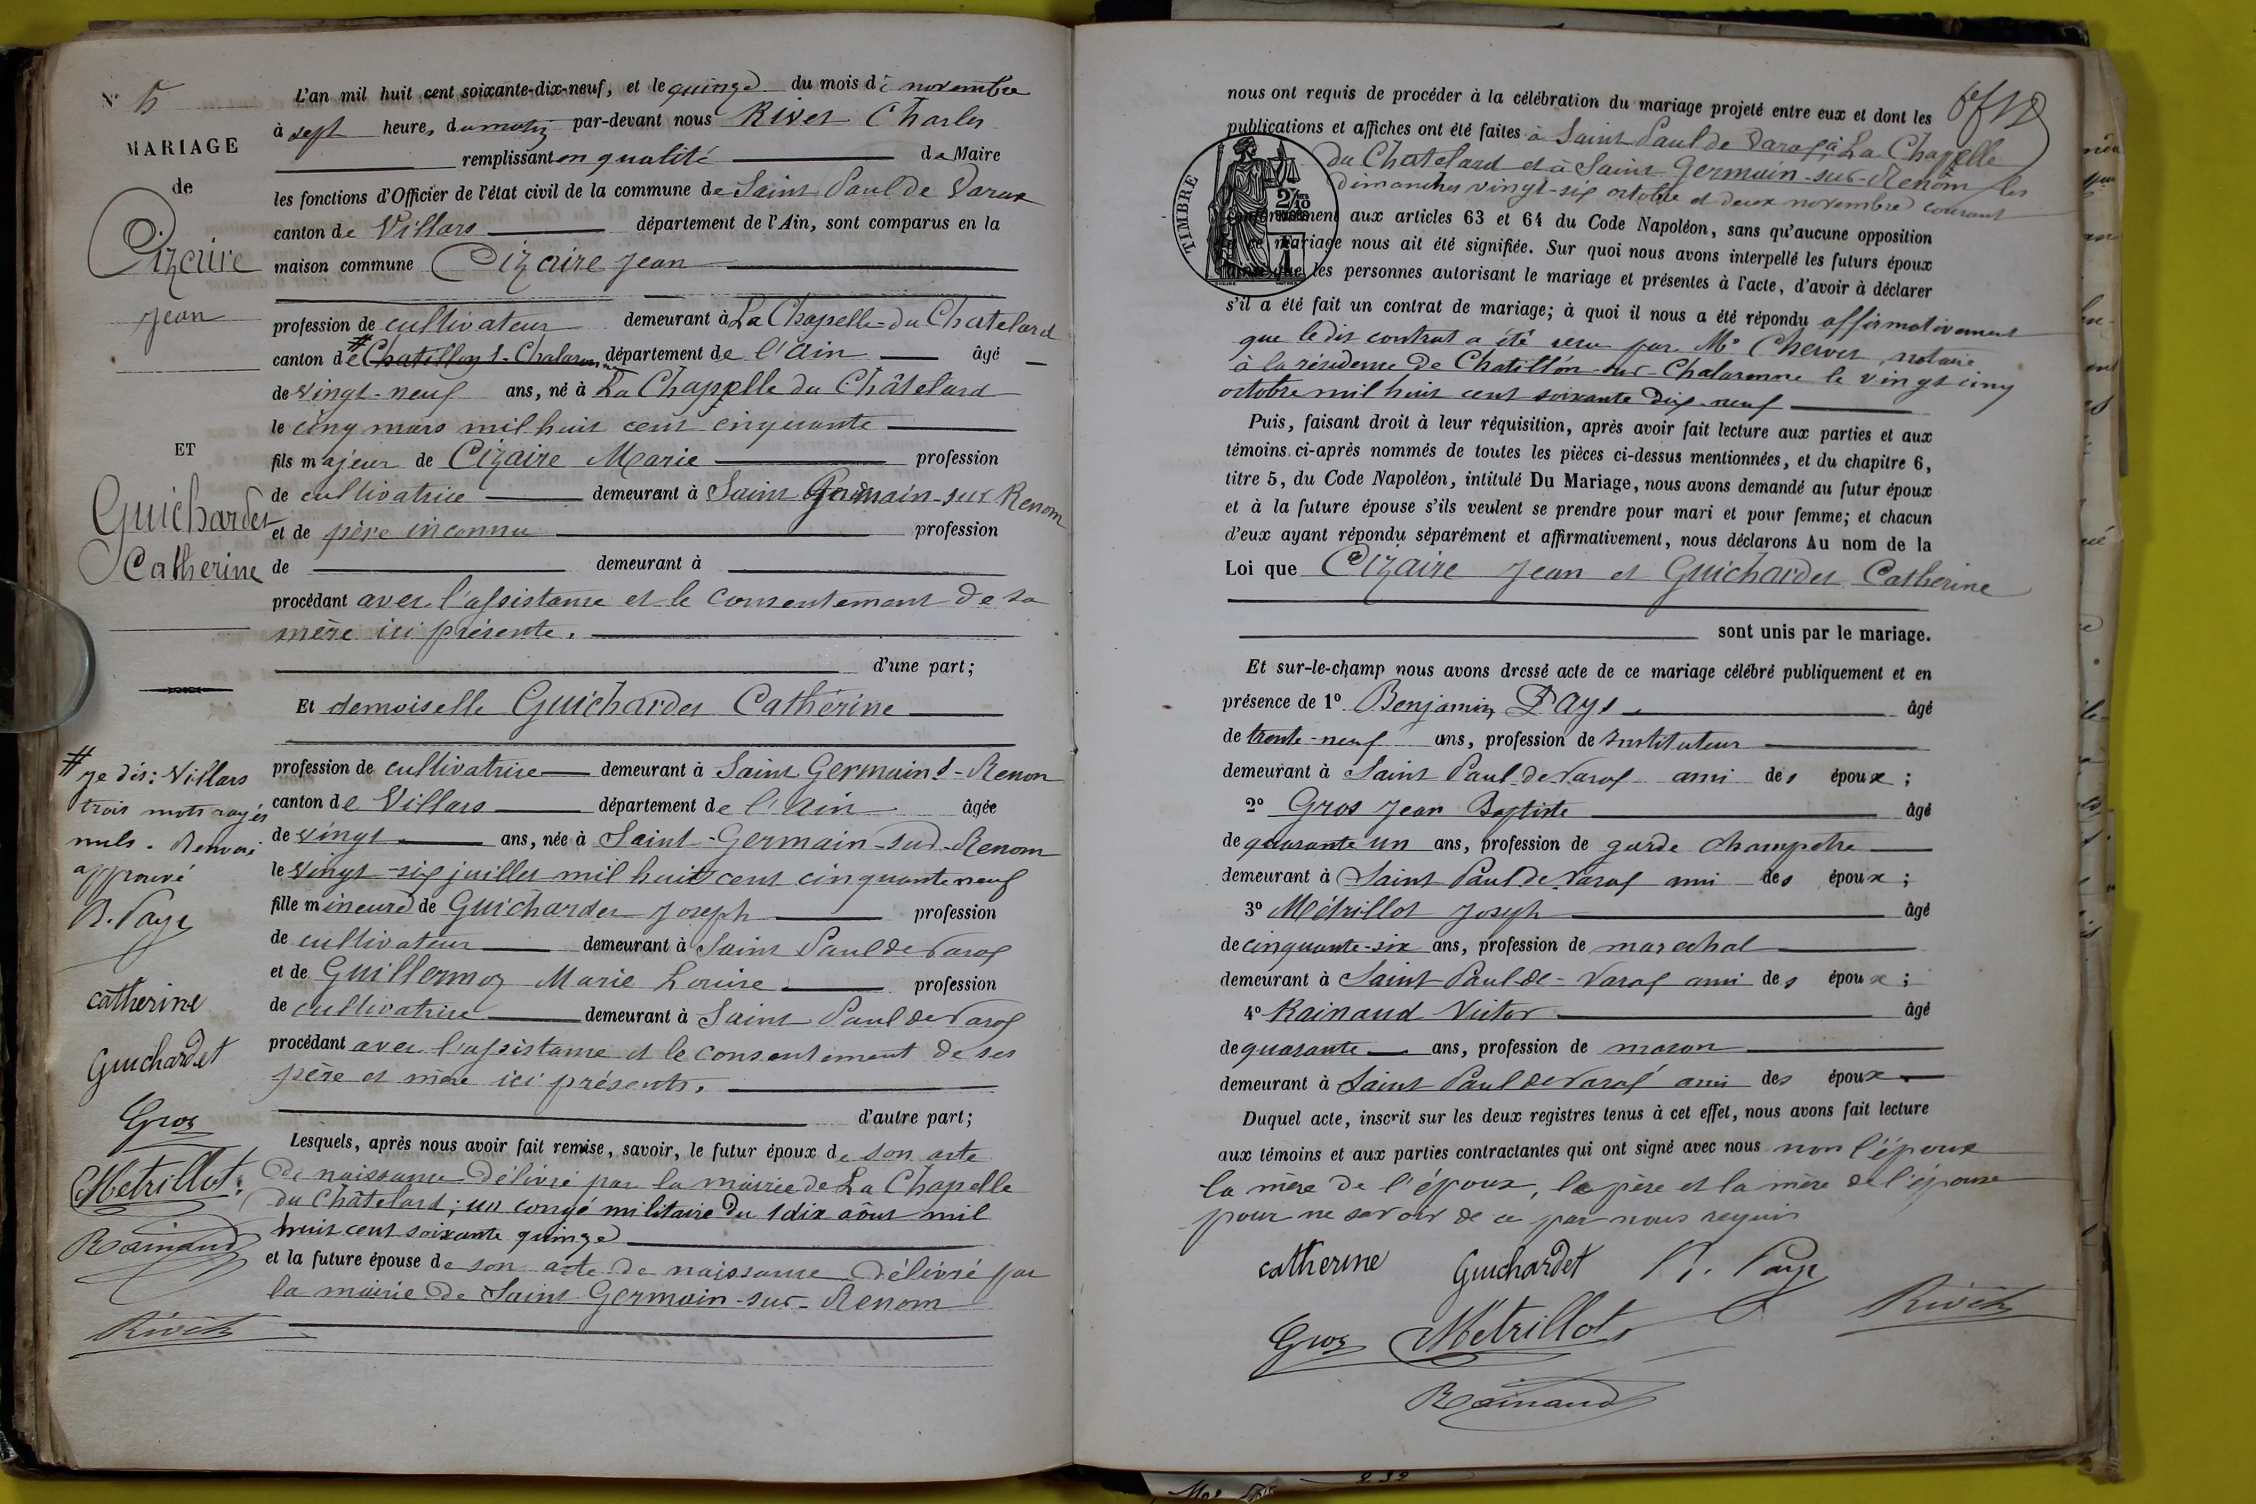 N° 5
MARIAGE
de
Cizaire
Jean
ET
Guichardet
Catherine
# je dis: Villars
trois mots rayés
nuls. Renvoi
approuvé
B. Pays
catherine
Guichardet
Gros
Métrillot
Rainaud
Rivet
L'an mil huit cent soixante-dix-neuf, et le quinze du mois de novembre
à sept heures du matin par-devant nous Rivet Charles
remplissant en qualité de Maire
les fonctions d'Officier de l'état civil de la commune de Saint Paul de Varax
canton de Villars département de l'Ain, sont comparus en la
maison commune Cizaire Jean
profession de cultivateur demeurant à La Chapelle-du Chatelard
canton de # Chatillon s. Chalaronne département de l'Ain âgé
de vingt-neuf ans, né à La Chapelle du Châtelard
le cinq mars mil huit cent cinquante
fils majeur de Cizaire Marie profession
de cultivatrice demeurant à Saint Germain-sur Renom
et de père inconnu profession
de demeurant à
procédant avec l'assistance et le consentement de sa
mère ici présente.
d'une part;
Et demoiselle Guichardet Cathérine
profession de cultivatrice demeurant à Saint Germain s-Renon
canton de Villars département de l'Ain âgée
de vingt ans, née à Saint-Germain-sur-Renom
le vingt-six juillet mil huit cent cinquante neuf
fille mineure de Guichardet Joseph profession
de cultivateur demeurant à Saint Paul de Varax
et de Guillermoz Marie Louise profession
de cultivatrice demeurant à Saint Paul de Varax
procédant avec l'assistance et le consentement de ses
père et mère ici présents.
d'autre part;
Lesquels, après nous avoir fait remise, savoir, le futur époux de son acte
de naissance délivré par la mairie de La Chapelle
du Châtelard; un congé militaire du dix août mil
huit cent soixante quinze
et la future épouse de son acte de naissance délivré par
la mairie de Saint Germain-sur-Renom
nous ont requis de procéder à la célébration du mariage projeté entre eux et dont les
publications et affiches ont été faites à Saint Paul de Varax, à La Chapelle
du Chatelard et à Saint Germain-sur-Renom les
dimanches vingt-six octobre et deux novembre courant
TIMBRE
conformément aux articles 63 et 64 du Code Napoléon, sans qu'aucune opposition
à ce mariage nous ait été signifiée. Sur quoi nous avons interpellé les futurs époux
ainsi que les personnes autorisant le mariage et présentes à l'acte, d'avoir à déclarer
s'il a été fait un contrat de mariage; à quoi il nous a été répondu affirmativement
que le dit contrat a été reçu par Me Chervet, notaire
à la résidence de Chatillon-sur-Chalaronne le vingt cinq
octobre mil huit cent soixante dix-neuf
Puis, faisant droit à leur réquisition, après avoir fait lecture aux parties et aux
témoins ci-après nommés de toutes les pièces ci-dessus mentionnées, et du chapitre 6,
titre 5, du Code Napoléon, intitulé Du Mariage, nous avons demandé au futur époux
et à la future épouse s'ils veulent se prendre pour mari et pour femme; et chacun
d'eux ayant répondu séparément et affirmativement, nous déclarons Au nom de la
Loi que Cizaire Jean et Guichardet Catherine
sont unis par le mariage.
Et sur-le-champ nous avons dressé acte de ce mariage célébré publiquement et en
présence de 1° Benjamin Pays âgé
de trente-neuf ans, profession de Instituteur
demeurant à Saint Paul-de-Varax ami des époux;
2° Gros Jean Baptiste âgé
de quarante un ans, profession de garde champetre
demeurant à Saint Paul de Varax ami des époux;
3° Métrillot Joseph âgé
de cinquante-six ans, profession de marechal
demeurant à Saint Paul-de-Varax ami des époux;
4° Rainaud Victor âgé
de quarante ans, profession de maçon
demeurant à Saint Paul de Varax ami des époux
Duquel acte, inscrit sur les deux registres tenus à cet effet, nous avons fait lecture
aux témoins et aux parties contractantes qui ont signé avec nous non l'époux
la mère de l'époux, le père et la mère de l'épouse
pour ne savoir de ce par nous requis
catherine Guichardet B. Pays
Gros Métrillot Rivet
Rainaud